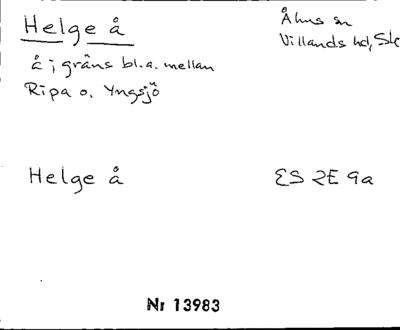 Helge å
Åhus sn
Villands hd, Sk
å; gräns bl.a. mellan
Ripa o. Yngsjö
Helge å
ES 2E 9a
Nr 13983